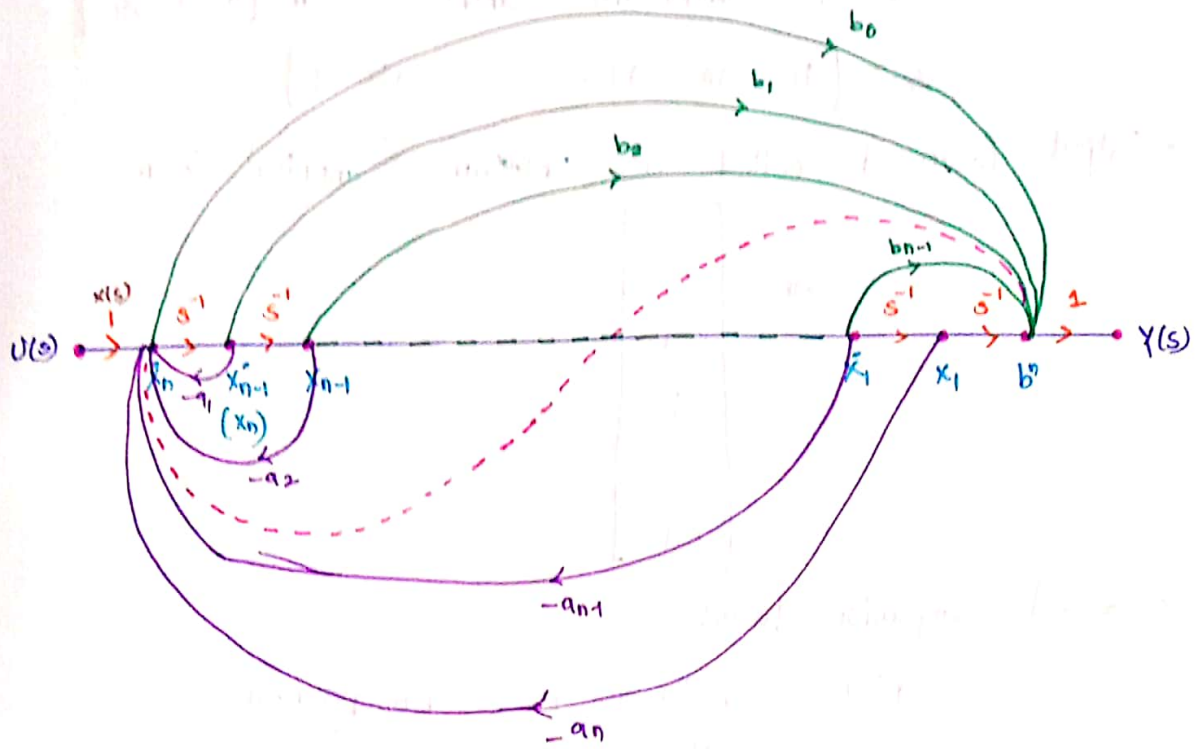 b₀
b₁
b₂
bn-1
x(s)
1 s⁻¹ s⁻¹ s⁻¹ s⁻¹ 1
U(s) Y(s)
ẋn ẋn-1 xn-1 ẋ1 x1 bn
(xn)
-a₁
-a₂
-an-1
-an